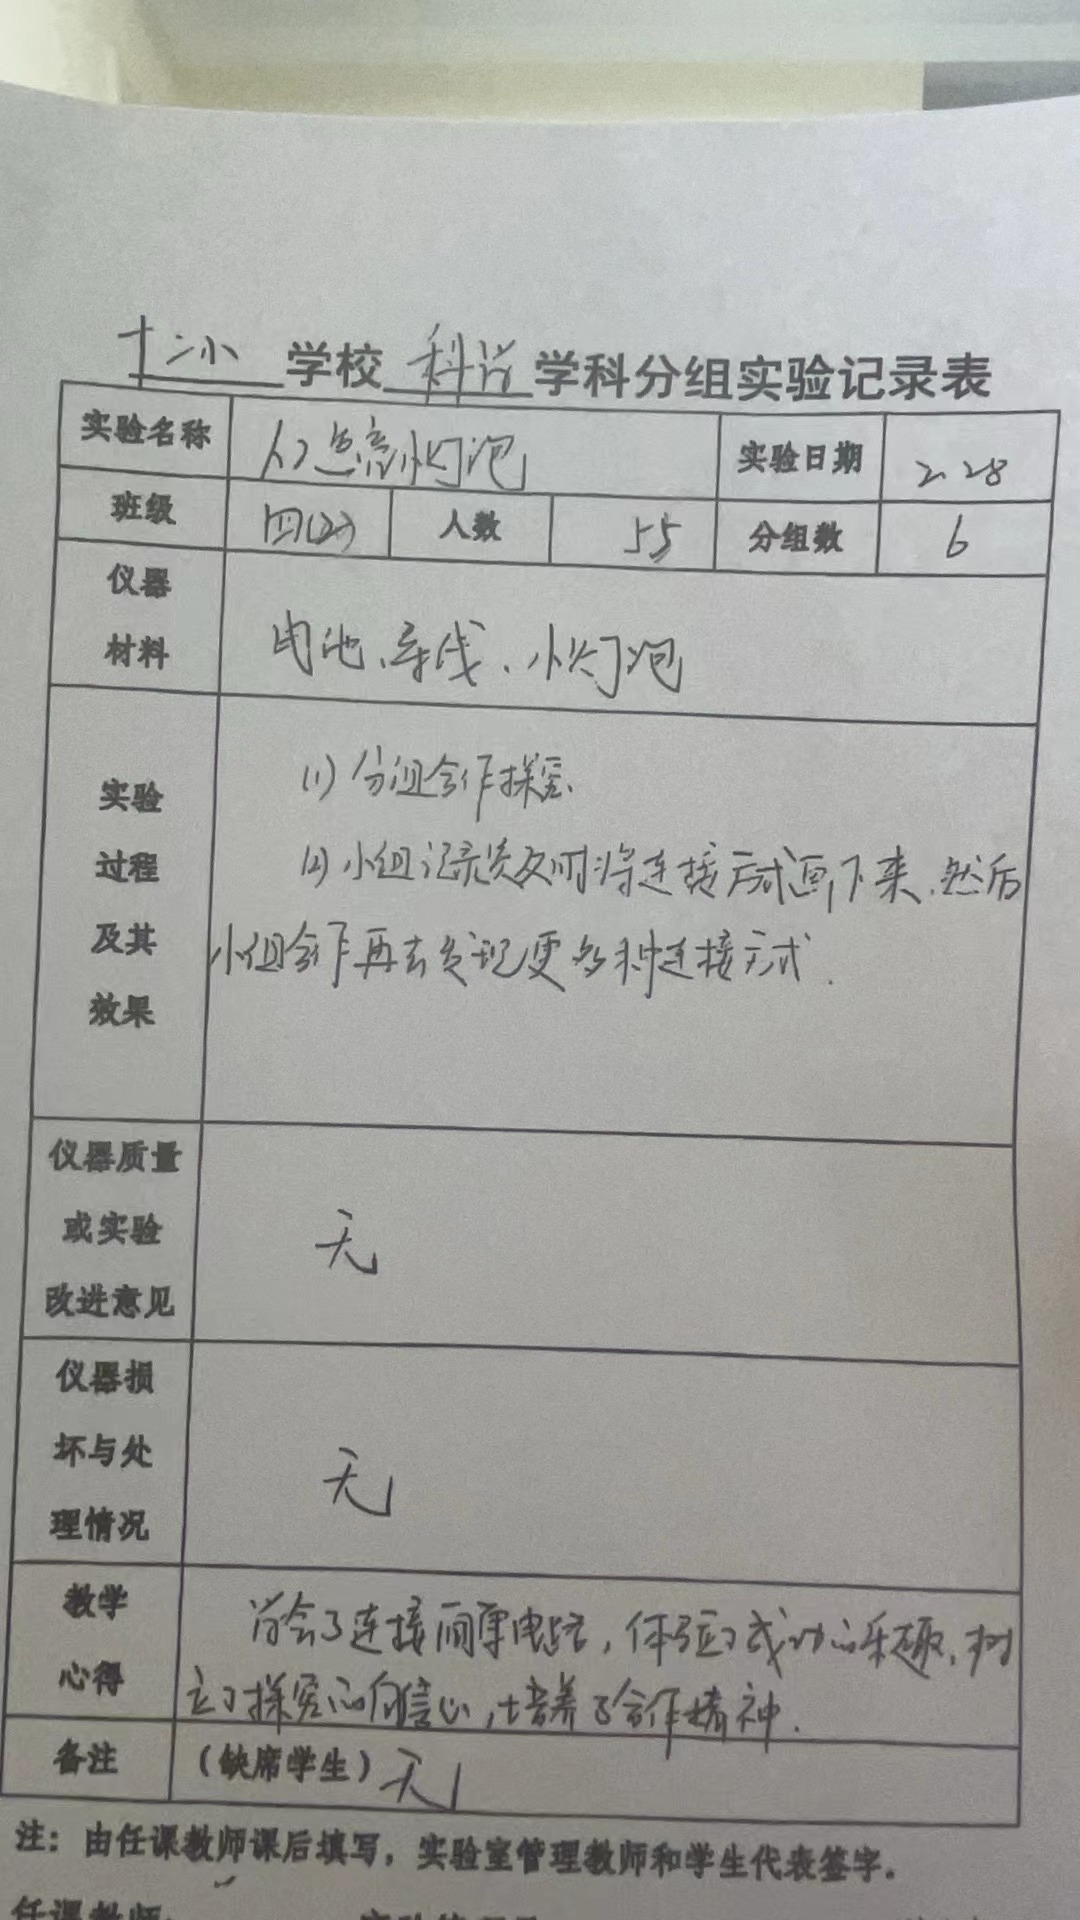 十二小 学校 科学 学科分组实验记录表
实验名称 点亮小灯泡 实验日期 2.28
班级 四(2) 人数 55 分组数 6
仪器
材料
电池、导线、小灯泡
实验
过程
及其
效果
(1)分组合作探究.
(2)小组记录员及时将连接方式画下来.然后
小组合作再去发现更多种连接方式.
仪器质量
或实验
改进意见
无
仪器损
坏与处
理情况
无
教学
心得
学会了连接简单电路,体验了成功的乐趣,树
立了探究的自信心,培养了合作精神.
备注 (缺席学生) 无
注:由任课教师课后填写,实验室管理教师和学生代表签字.
任课教师: